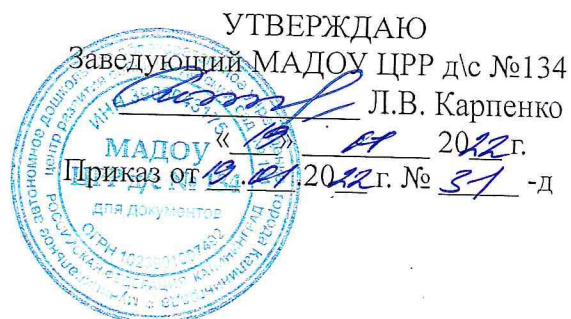 УТВЕРЖДАЮ
Заведующий МАДОУ ЦРР д\с №134
Л.В. Карпенко
« 19 » 01 2022г.
Приказ от 19.01.2022г. № 31 -д
МАДОУ
ЦРР Д/С № 134
для документов